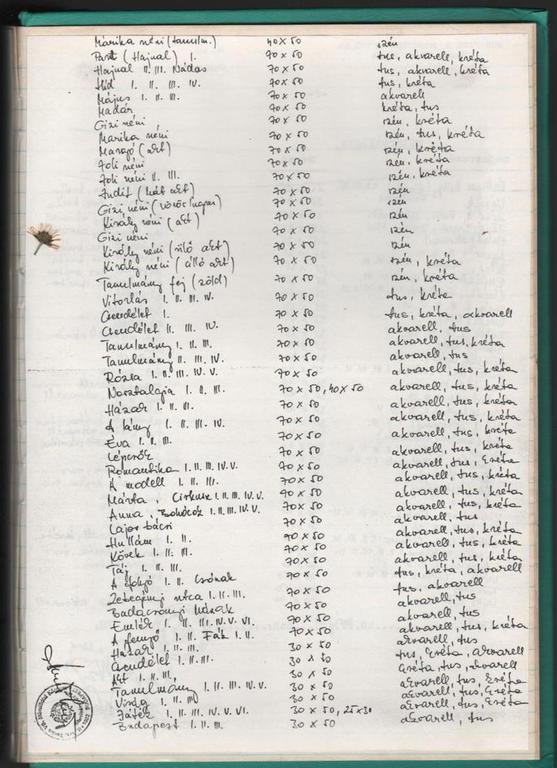 Marika néni (tanulm.) 40 x 50 szén
Part (Hajnal) I. 70 x 50 tus, akvarell, kréta
Hajnal II. III. Nádas 70 x 50 tus, akvarell, kréta
Híd I. II. III. IV. 70 x 50 tus, kréta
Május I. II. III. 70 x 50 akvarell
Madár 70 x 50 kréta, tus
Gizi néni 70 x 50 szén, kréta
Marika néni 70 x 50 szén, tus, kréta
Margó (akt) 70 x 50 szén, kréta
Joli néni 70 x 50 szén, kréta
Joli néni II. III. 70 x 50 szén, kréta
Judit (hát akt) 70 x 50 szén
Gizi néni 70 x 50 szén
Király néni (akt) 70 x 50 szén
Gizi néni 70 x 50 szén
Király néni (ülő akt) 70 x 50 szén
Király néni (álló akt) 70 x 50 szén, kréta
Tanulmány fej (zöld) 70 x 50 szén, kréta
Vitorlás I. II. III. IV. 70 x 50 tus, kréta
Csendélet I. 70 x 50 tus, kréta, akvarell
Csendélet II. III. IV. 70 x 50 akvarell, tus
Tanulmány I. II. III. 70 x 50 akvarell, tus, kréta
Tanulmány II. III. IV. 70 x 50 akvarell, tus
Rózsa I. II. III. IV. V. 70 x 50 akvarell, tus, kréta
Nosztalgia I. II. III. 70 x 50, 40 x 50 akvarell, tus, kréta
Házak I. II. III. 70 x 50 akvarell, tus, kréta
A lány I. II. III. IV. 70 x 50 akvarell, tus, kréta
Éva I. II. III. 70 x 50 akvarell, tus, kréta
Lépcsők 70 x 50 akvarell, tus, kréta
Romantika I. II. III. IV. V. 70 x 50 akvarell, tus, kréta
A modell I. II. III. 70 x 50 akvarell, tus, kréta
Márta, Cirkusz I. II. III. IV. V. 70 x 50 akvarell, tus, kréta
Anna, Bohócok I. II. III. IV. V. 70 x 50 akvarell, tus, kréta
Lajos bácsi 70 x 50 akvarell, tus
Hullám I. II. 70 x 50 akvarell, tus, kréta
Kövek I. II. III. 70 x 50 akvarell, tus, kréta
Táj I. II. III. 70 x 50 akvarell, tus, kréta
A folyó I. II. Csónak 70 x 50 tus, kréta, akvarell
Zebegényi utca I. II. III. 70 x 50 tus, akvarell
Badacsonyi 70 x 50 akvarell, tus
Emlék I. II. III. IV. V. 70 x 50 akvarell, tus
A fenyő I. II. Fák I. II. 70 x 50 akvarell, tus, kréta
Határ I. II. III. 30 x 50 akvarell, tus
Csendélet I. II. III. 30 x 50 tus, kréta, akvarell
Akt I. II. III. 30 x 50 kréta, tus, akvarell
Tanulmány I. II. III. IV. V. 30 x 50 akvarell, tus, kréta
Virág I. II. III. 30 x 50 akvarell, tus, kréta
Játék I. II. III. IV. V. VI. 30 x 50, 25 x 30 akvarell, tus, kréta
Budapest I. II. III. 30 x 50 akvarell, tus